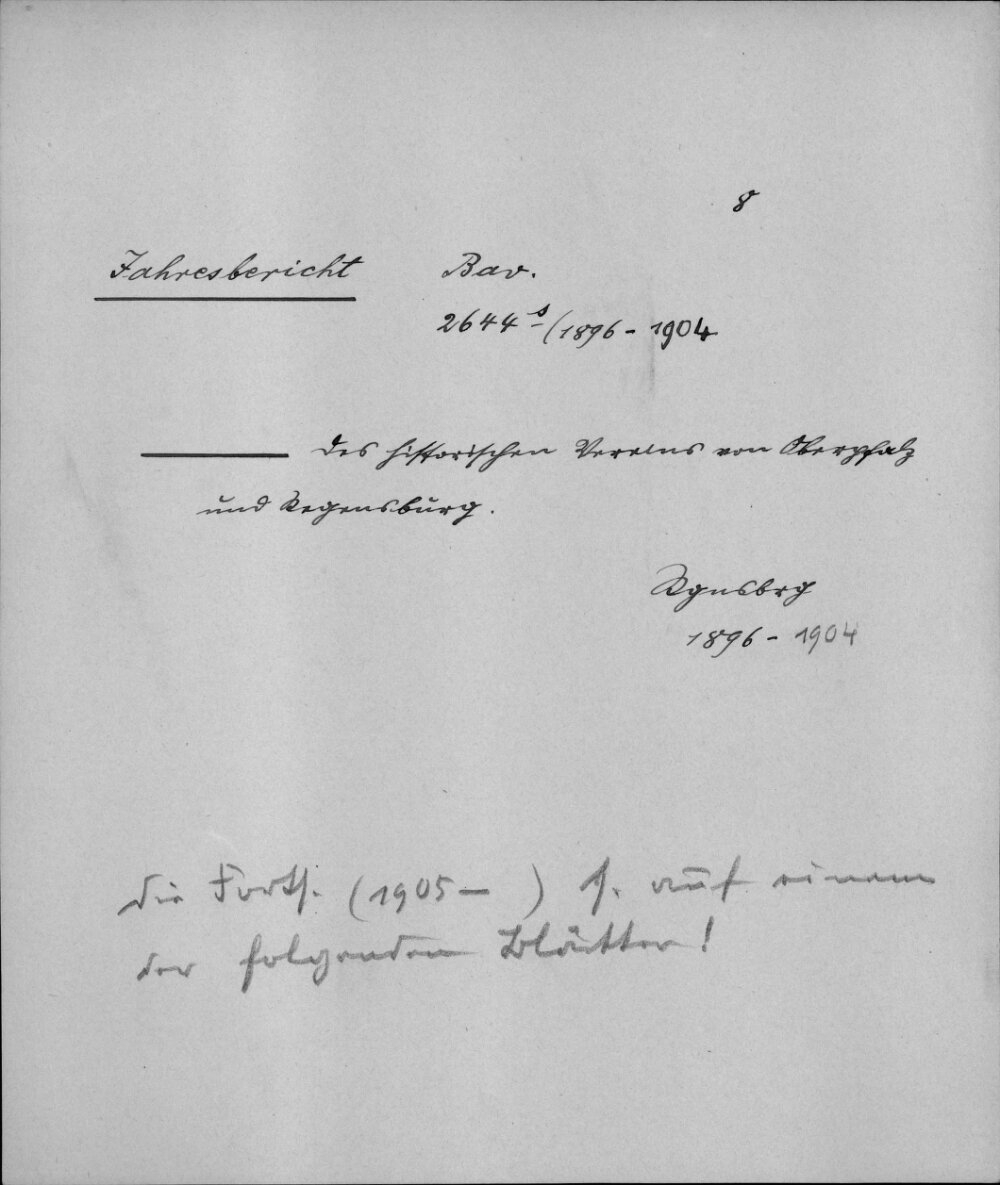 8
Jahresbericht Bav.
2644 s/(1896 - 1904
——— des historischen Vereins von Oberpfalz
und Regensburg.
Rgnsbrg
1896 - 1904
Die Forts. (1905 — ) s. auf einem
der folgenden Blätter!